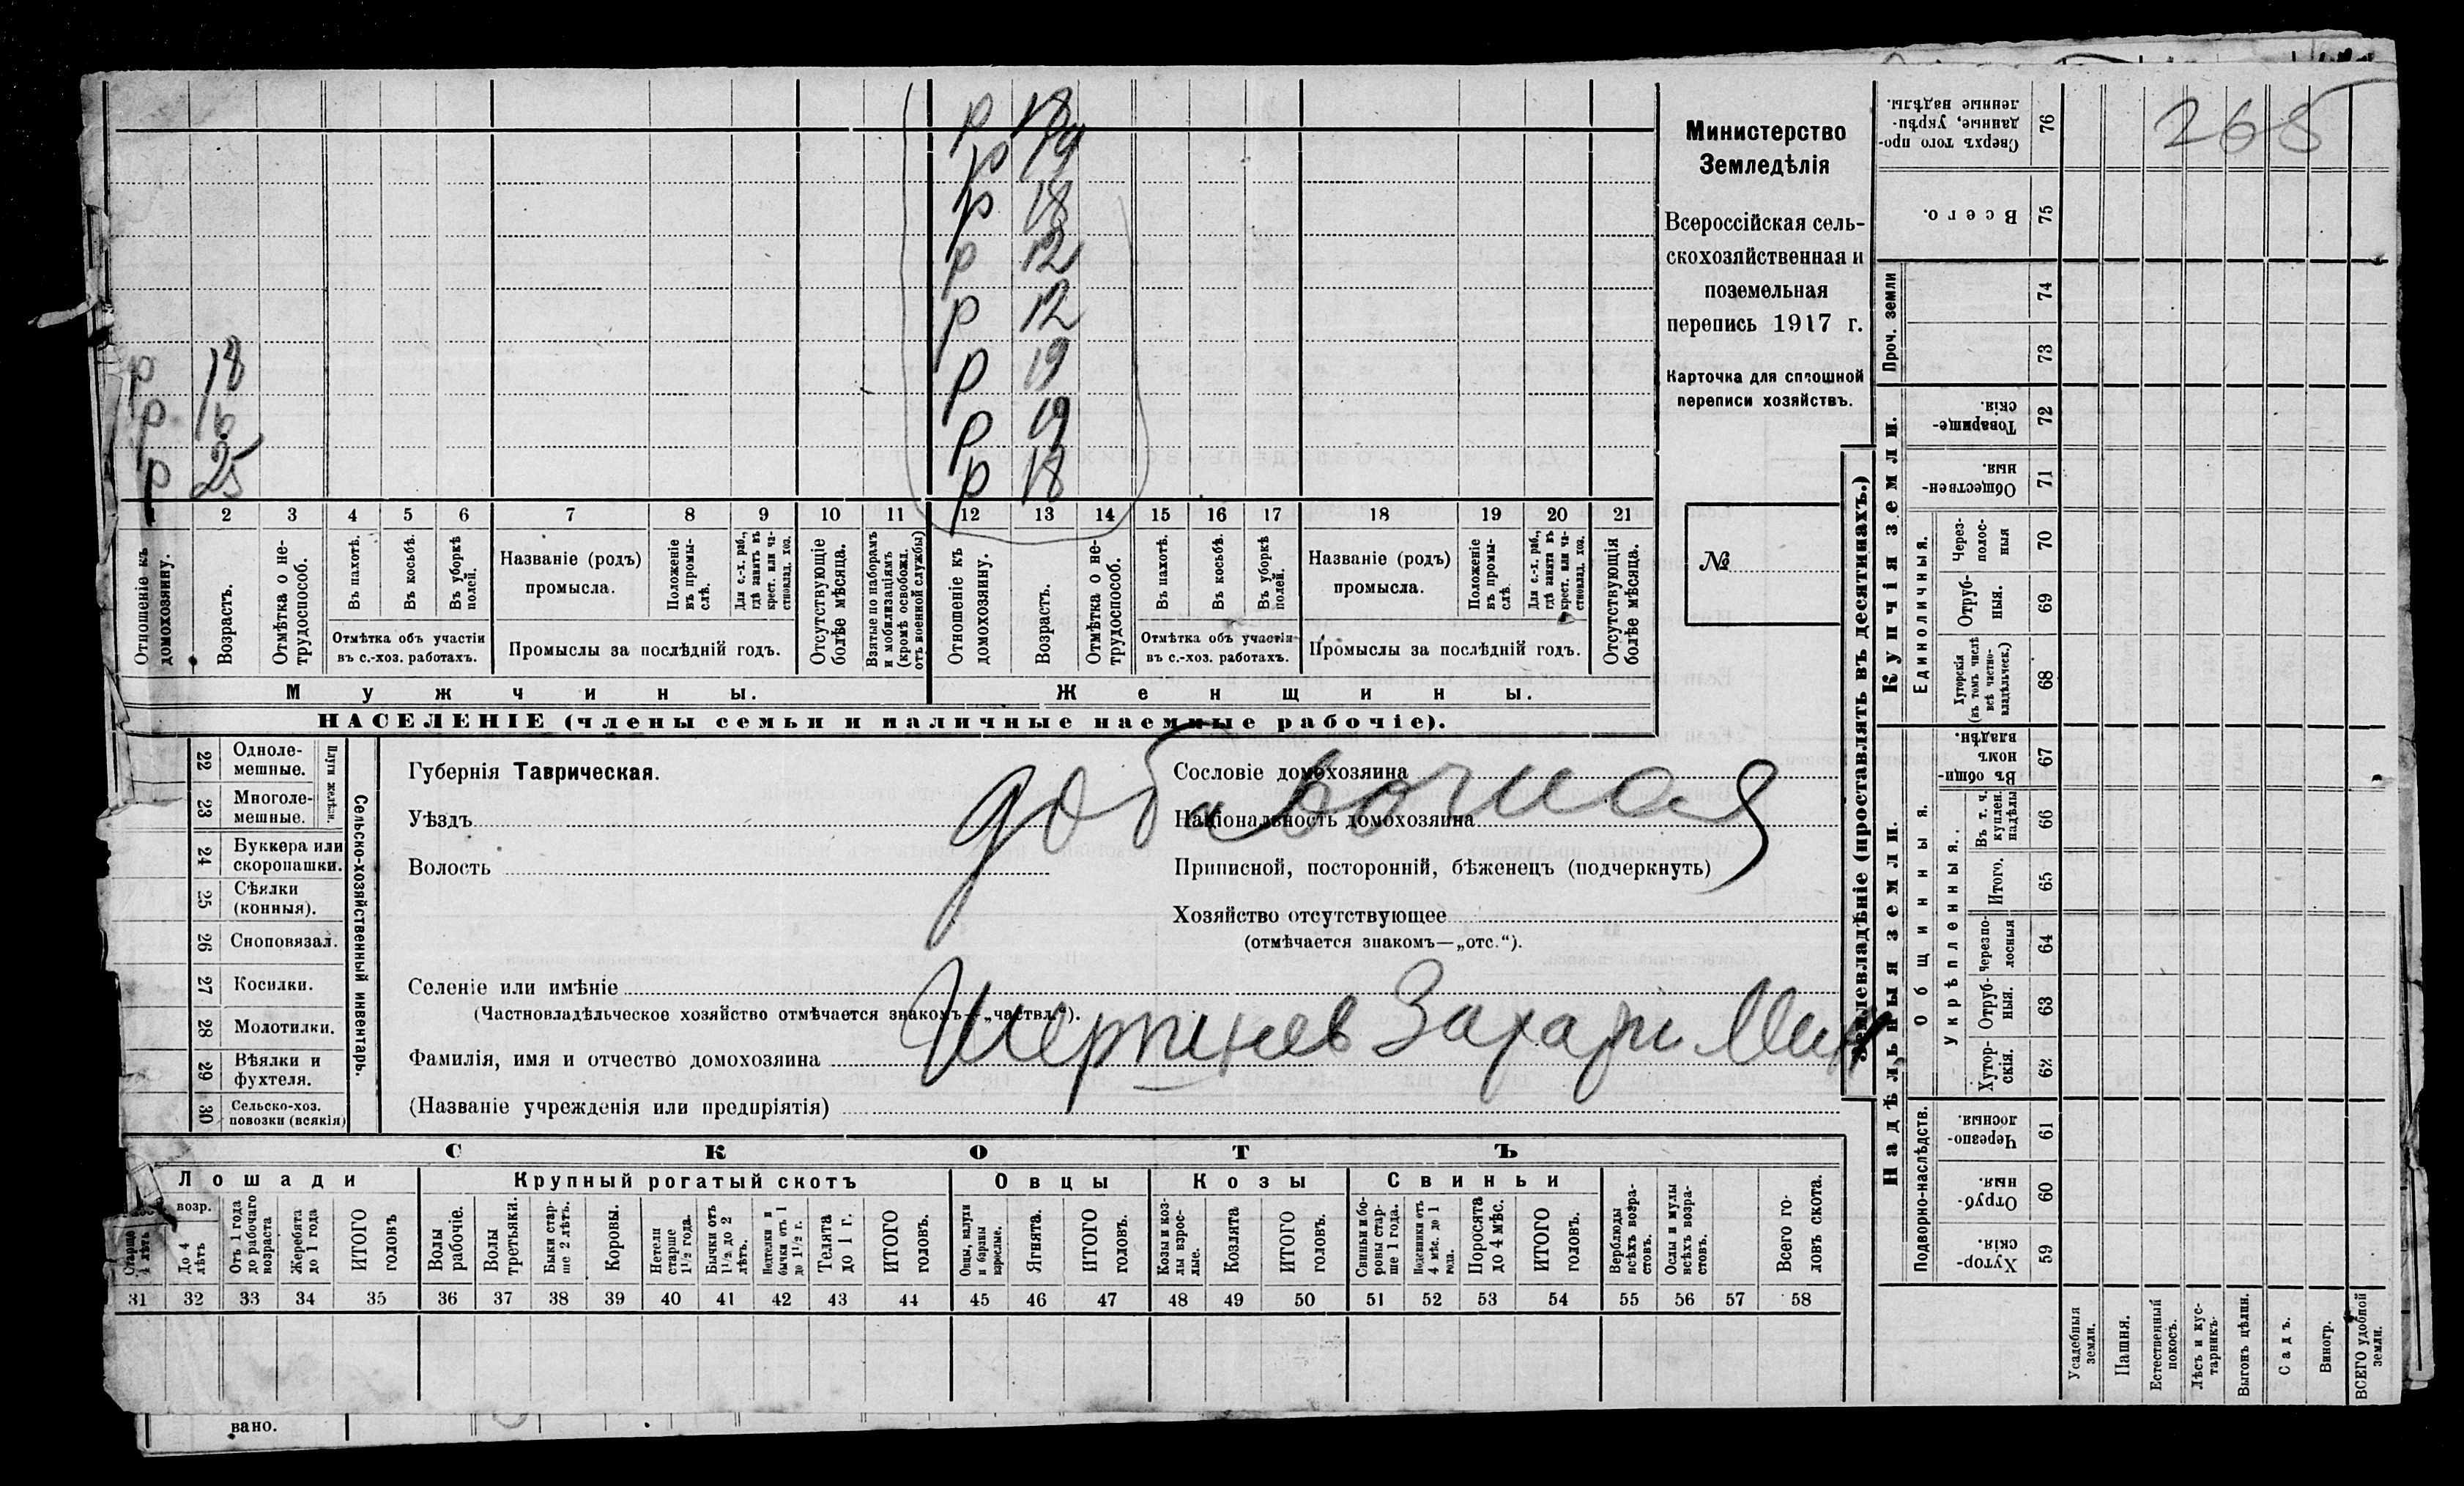 р 18
р 19
р 18
р 12
р 12
р 18 р 19
р 16 р 19
р 25 р 18
2 3 4 5 6 7 8 9 10 11 12 13 14 15 16 17 18 19 20 21
Отношеніе къ домохозяину.
Возрастъ.
Отмѣтка о не-
трудоспособ.
Въ пахотѣ.
Въ косьбѣ.
Въ уборкѣ
полей.
Отмѣтка объ участіи
въ с.-хоз. работахъ.
Названіе (родъ)
промысла.
Положеніе
въ промы-
слѣ.
Для с.-х. раб.,
гдѣ занятъ въ
крест. или ча-
стновлад. хоз.
Промыслы за послѣдній годъ.
Отсутствующіе
болѣе мѣсяца.
Взятые по наборамъ
и мобилизаціямъ
(кромѣ освобожд.
отъ военной службы)
Отношеніе къ
домохозяину.
Возрастъ.
Отмѣтка о не-
трудоспособ.
Въ пахотѣ.
Въ косьбѣ.
Въ уборкѣ
полей.
Отмѣтка объ участіи
въ с.-хоз. работахъ.
Названіе (родъ)
промысла.
Положеніе
въ промы-
слѣ.
Для с.-х. раб.,
гдѣ занята въ
крест. или ча-
стновлад. хоз.
Промыслы за послѣдній годъ.
Отсутствующія
болѣе мѣсяца.
Мужчины.
Женщины.
НАСЕЛЕНІЕ (члены семьи и наличные наемные рабочіе).
Министерство
Земледѣлія
Всероссійская сель-
скохозяйственная и
поземельная
перепись 1917 г.
Карточка для сплошной
переписи хозяйствъ.
№
22 Одноле-
мешные.
23 Многоле-
мешные.
Плуги желѣзн.
24 Буккера или
скоропашки.
25 Сѣялки
(конныя).
26 Сноповязал.
27 Косилки.
28 Молотилки.
29 Вѣялки и
фухтеля.
30 Сельско-хоз.
повозки (всякія)
Сельско-хозяйственный инвентарь.
Губернія Таврическая.
Уѣздъ
Волость
добавочная
Сословіе домохозяина
Національность домохозяина
Приписной, посторонній, бѣженецъ (подчеркнуть)
Хозяйство отсутствующее
(отмѣчается знакомъ—„отс.“).
Селеніе или имѣніе
(Частновладѣльческое хозяйство отмѣчается знакомъ—„частвл.“).
Фамилія, имя и отчество домохозяина
(Названіе учрежденія или предпріятія)
СКОТЪ
Лошади
Крупный рогатый скотъ
Овцы
Козы
Свиньи
возр.
Старше
4 лѣтъ
До 4
лѣтъ
Отъ 1 года
до рабочаго
возраста
Жеребята
до 1 года
ИТОГО
головъ
Волы
рабочіе.
Волы
третьяки.
Быки стар-
ше 2 лѣтъ.
Коровы.
Нетели
старше
1 1/2 года.
Бычки отъ
1 1/2 до 2
лѣтъ.
Нетелки и
бычки отъ 1
до 1 1/2 г.
Телята
до 1 г.
ИТОГО
головъ.
Овцы, валухи
и бараны
взрослые.
Ягнята.
ИТОГО
головъ.
Козы и коз-
лы взрос-
лые.
Козлята
ИТОГО
головъ.
Свиньи и бо-
ровы стар-
ше 1 года.
Подсвинки отъ
4 мѣс. до 1
года.
Поросята
до 4 мѣс.
ИТОГО
головъ.
Верблюды
всѣхъ возра-
стовъ.
Ослы и мулы
всѣхъ возра-
стовъ.
Всего го-
ловъ скота.
31 32 33 34 35 36 37 38 39 40 41 42 43 44 45 46 47 48 49 50 51 52 53 54 55 56 57 58
вано.
Землевладѣніе (проставлять въ десятинахъ.)
Надѣльныя земли.
Купчія земли.
Проч. земли
265
Сверхъ того про-
данные, укрѣп-
ленные надѣлы.
76
Всего.
75
74
73
Товарище-
скія.
72
Обществен-
ныя.
71
Единоличныя.
Через-
полос-
ныя
70
Отруб-
ныя.
69
Хуторскія
(въ томъ числѣ
всѣ частно-
владѣльческ.)
68
Общинныя.
Въ общи-
номъ
владѣн.
67
Укрѣпленныя.
Въ т. ч.
куплен.
надѣлы
66
Итого.
65
Черезпо-
лосныя
64
Отруб-
ныя.
63
Хутор-
скія.
62
Подворно-наслѣдств.
Черезпо-
лосныя.
61
Отруб-
ныя.
60
Хутор-
скія.
59
Усадебныя
земли.
Пашня.
Естественный
покосъ.
Лѣсъ и кус-
тарникъ.
Выгонъ цѣлин.
Садъ.
Виногр.
ВСЕГО удобной
земли.